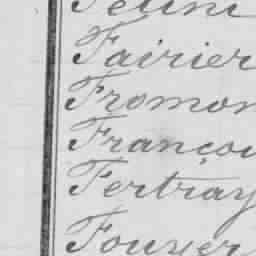 Fairier
Fromon
Françoi
Fertray
Fouyer